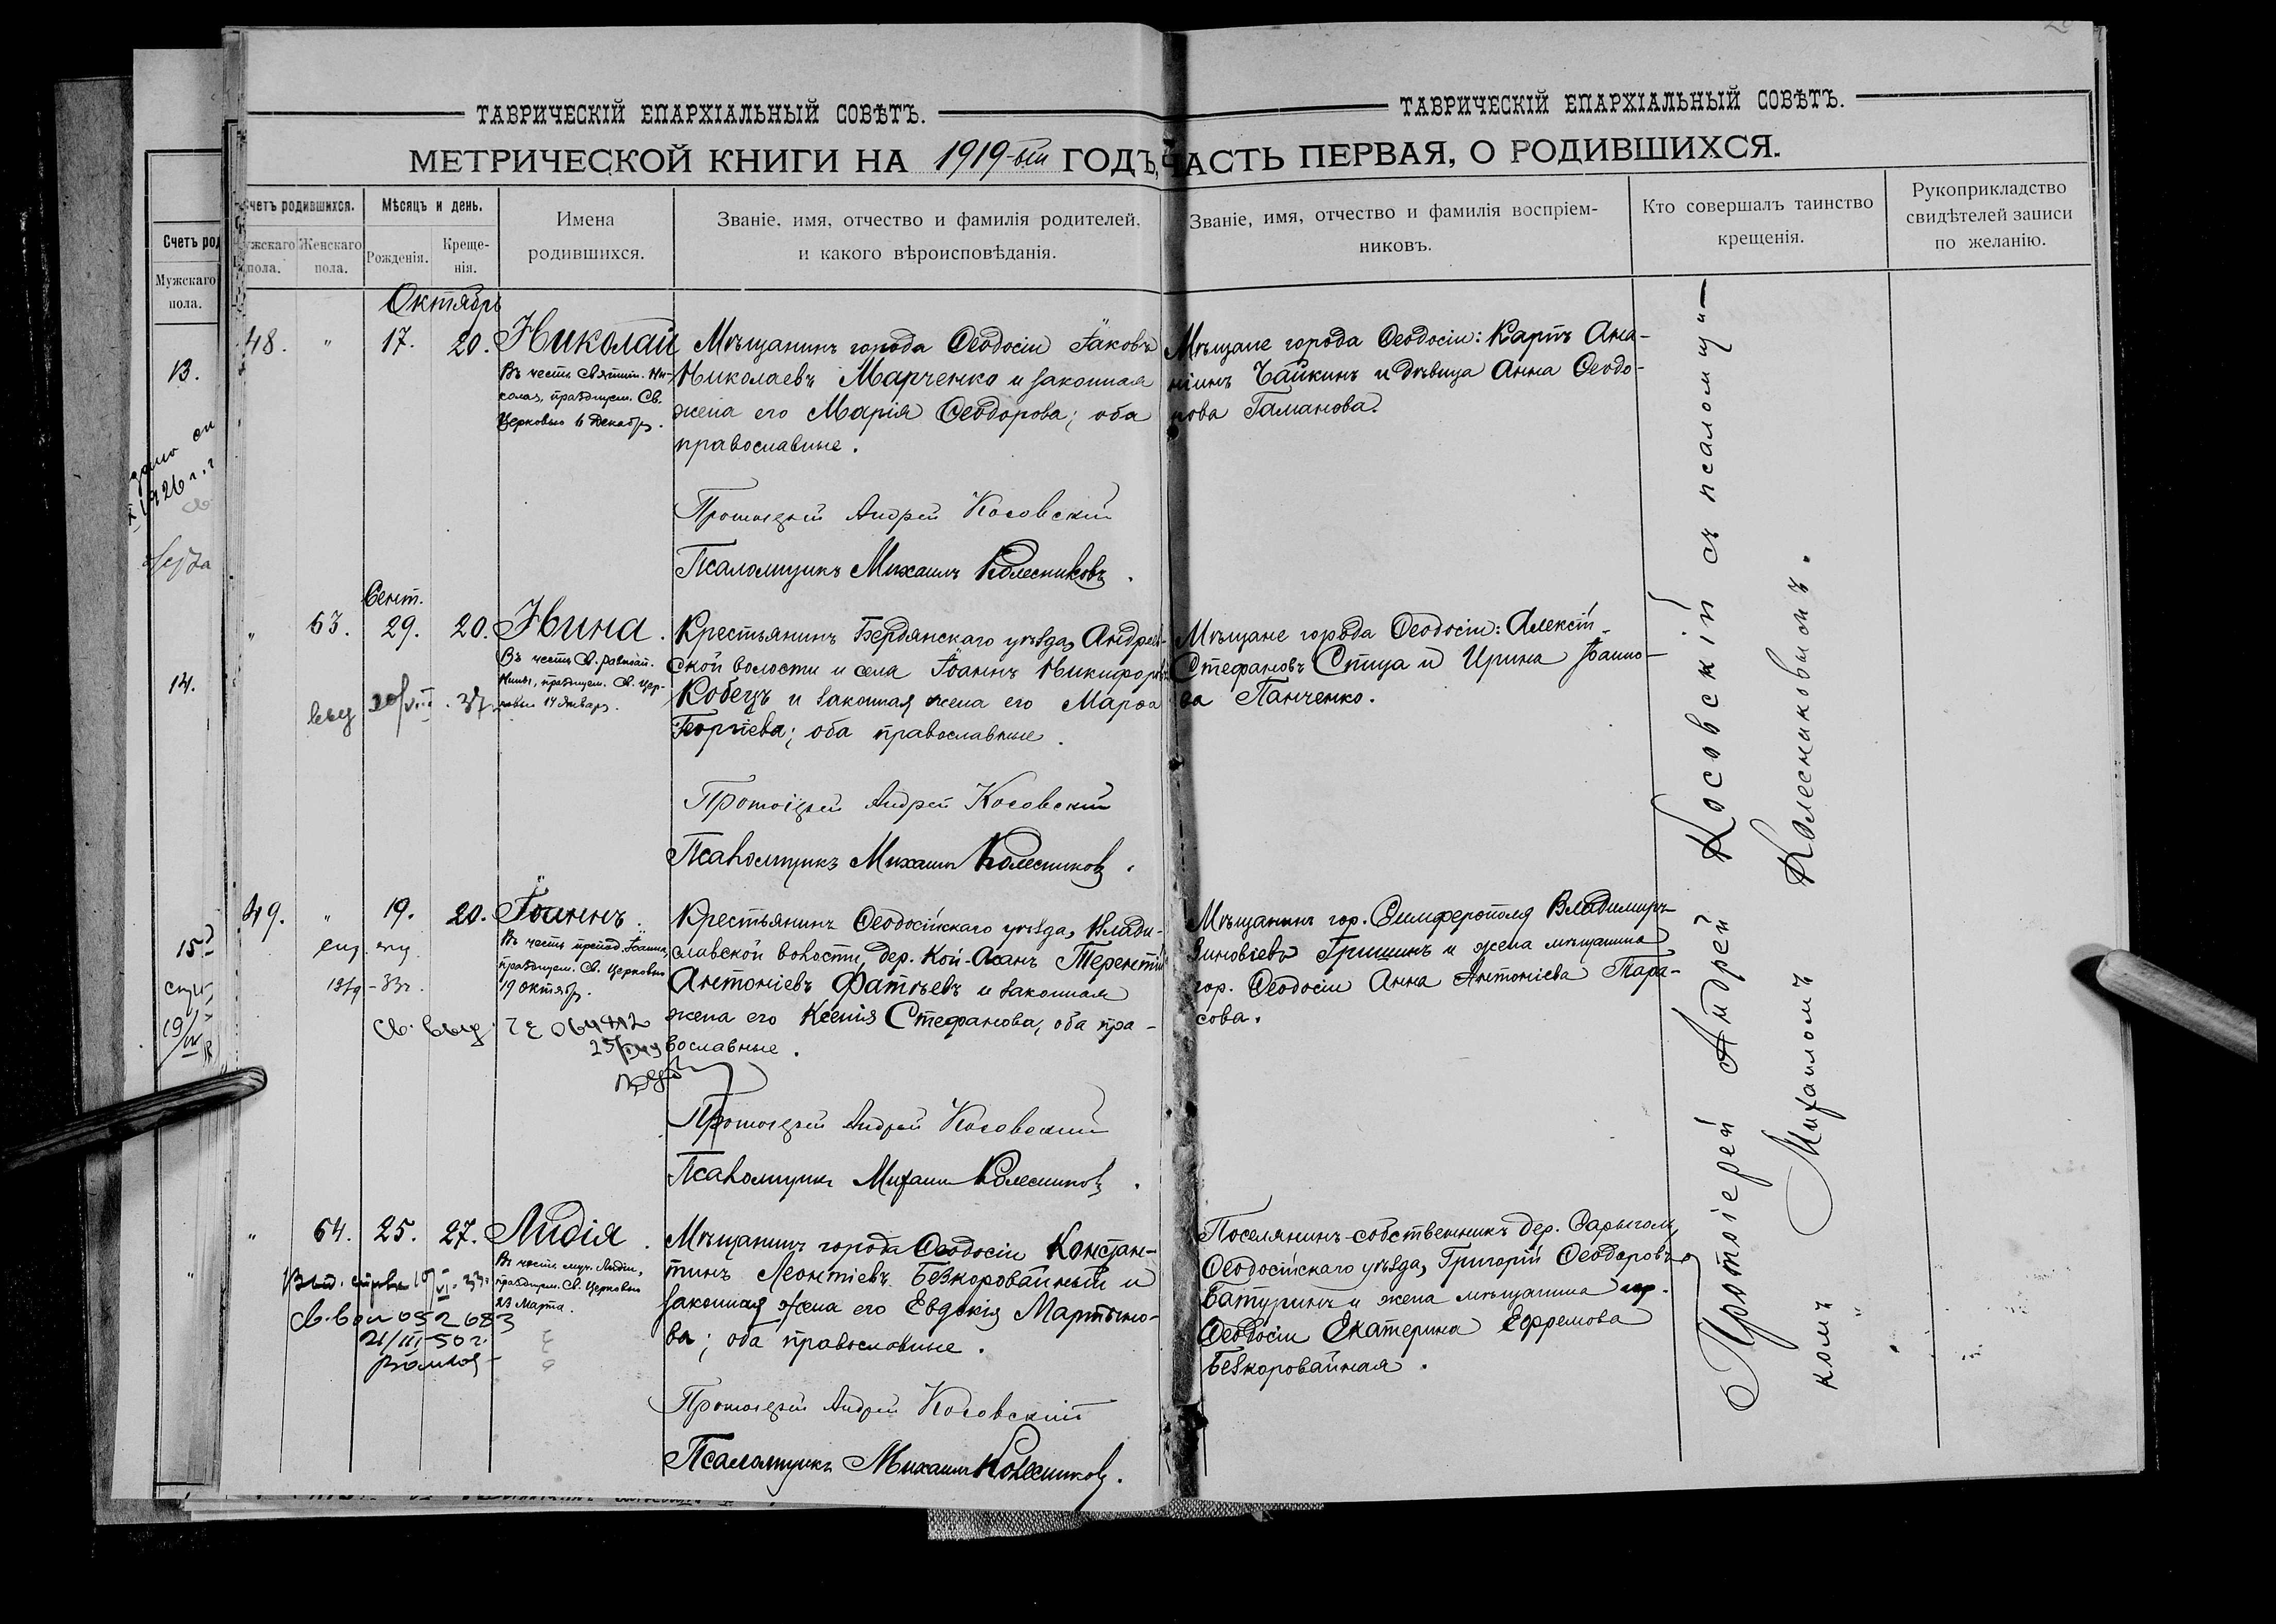 ТАВРИЧЕСКІЙ ЕПАРХІАЛЬНЫЙ СОВѢТЪ.
ТАВРИЧЕСКІЙ ЕПАРХІАЛЬНЫЙ СОВѢТЪ.
МЕТРИЧЕСКОЙ КНИГИ НА 1919-ый ГОДЪ, ЧАСТЬ ПЕРВАЯ, О РОДИВШИХСЯ.
Счетъ родившихся.
Мужскаго пола.
Женскаго пола.
Мѣсяцъ и день.
Рожденія.
Креще-
нія.
Имена
родившихся.
Званіе, имя, отчество и фамилія родителей,
и какого вѣроисповѣданія.
Званіе, имя, отчество и фамилія воспріем-
никовъ.
Кто совершалъ таинство
крещенія.
Рукоприкладство
свидѣтелей записи
по желанію.
Счетъ род
Мужскаго
пола.
13.
1926 г.
14.
15
19/IV
Октябрь
48. " 17. 20. Николай
Въ честь Святит. Ни-
колая, празднуем. Св.
Церковью 6 Декабря.
Мѣщанинъ города Ѳеодосіи Іаковъ
Николаевъ Марченко и законная
жена его Марія Ѳеодорова; оба
православные.
Мѣщане города Ѳеодосіи: Карпъ Ана-
ніинъ Чайкинъ и дѣвица Анна Ѳеодо-
рова Гаманова.
Протоіерей Андрей Косовскій
Псаломщикъ Михаилъ Колесниковъ.
Сент.
" 63. 29. 20. Нина.
Въ честь Св. равноап.
Нины, празднуем. Св. Цер-
ковью 14 Января.
выд 20/VIII. 37.
Крестьянинъ Бердянскаго уѣзда, Андреев-
ской волости и села Іоаннъ Никифоровъ
Кобецъ и законная жена его Марѳа
Георгіева; оба православные.
Мѣщане города Ѳеодосіи: Алексѣй
Стефановъ Спица и Ирина Іоанно-
ва Панченко.
Протоіерей Андрей Косовскій
Псаломщикъ Михаилъ Колесниковъ.
49. " 19. 20. Іоаннъ.
Въ честь препод. Іоанна,
празднуем. Св. Церковью
19 октября.
Св. выд.
Крестьянинъ Ѳеодосійскаго уѣзда, Влади-
славской волости, дер. Кой-Асанъ Терентій
Антоніевъ Фатѣевъ и законная
жена его Ксенія Стефанова, оба пра-
вославные.
Мѣщанинъ гор. Симферополя Владимиръ
Зиновіевъ Гришинъ и жена мѣщанина
гор. Ѳеодосіи Анна Антоніева Тара-
сова.
Протоіерей Андрей Косовскій
Псаломщикъ Михаилъ Колесниковъ.
" 64. 25. 27. Лидія.
Въ честь муч. Лидіи,
празднуем. Св. Церковью
23 Марта.
21/III-50 г.
Мѣщанинъ города Ѳеодосіи Констан-
тинъ Леонтіевъ Безкоровайный и
законная жена его Евдокія Мартыно-
ва; оба православные.
Поселянинъ-собственникъ дер. Сарыголь,
Ѳеодосійскаго уѣзда, Григорій Ѳеодоровъ
Батуринъ и жена мѣщанина гор.
Ѳеодосіи Екатерина Ефремова
Безкоровайная.
Протоіерей Андрей Косовскій
Псаломщикъ Михаилъ Колесниковъ.
Протоіерей Андрей Косовскій съ псаломщи-
комъ Михаиломъ Колесниковымъ.